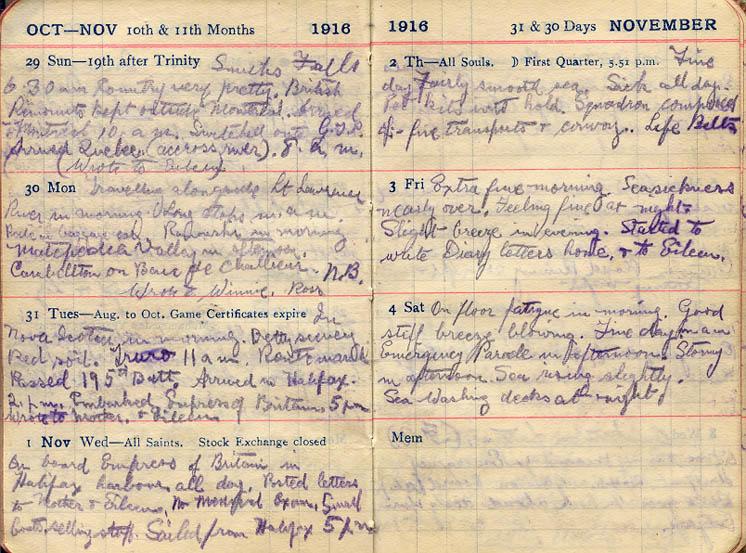 OCT—NOV 10th & 11th Months 1916
29 Sun—19th after Trinity Smiths Falls
6.30 am Country very pretty. British
Remounts kept outside Montreal. Arrived
Montreal 10. a.m. Switched onto G.T.R.
Arrived Quebec (accross river). 8. a.m.
(Wrote to Eileen)
30 Mon Travelling alongside St Lawrence
River in morning Long stops in a.m.
Rode in baggage car. in morning
Matapedia Valley in afternoon.
Cambellton on Baie de Challieur. N.B.
Wrote Winnie, Rose
31 Tues—Aug. to Oct. Game Certificates expire In
Nova Scotia in morning. Pretty scenery
Red soil. Truro 11 a m. Route march
Passed 195th Batt. Arrived in Halifax.
2. p.m. Embarked Empress of Britain 5 pm
Wrote to Mother. & Eileen
1 Nov Wed—All Saints. Stock Exchange closed
On board Empress of Britain in
Halifax harbour all day. Posted letters
to Mother & Eileen. No Medical Exam. Small
boats selling stop. Sailed from Halifax 5 pm
1916 31 & 30 Days NOVEMBER
2 Th—All Souls. ☽ First Quarter, 5.51 p.m. Fine
day Fairly smooth sea. Sick all day.
Put kits into hold. Squadron composed
of five transports & convoy. Life Belts
3 Fri Extra fine morning. Seasickness
nearly over. Feeling fine at night.
Slight breeze in evening. Started to
write Diary letters home, & to Eileen.
4 Sat On floor fatigue in morning. Good
stiff breeze blowing. Fine day in am
Emergency Parade in afternoon. Stormy
in afternoon. Sea rising slightly.
Sea Washing decks at night
Mem